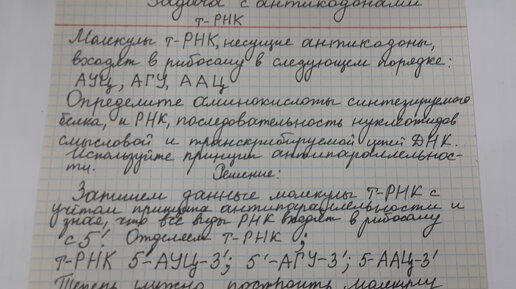 Задача с антикодонами
т-РНК
Молекулы т-РНК, несущие антикодоны,
входят в рибосому в следующем порядке:
АУЦ, АГУ, ААЦ
Определите аминокислоты синтезируемого
белка, и РНК, последовательность нуклеотидов
смысловой и транскрибируемой цепей ДНК.
Используйте принцип антипараллельнос-
ти. Решение:
Запишем данные молекулы т-РНК с
учётом принципа антипараллельности и
зная, что все виды РНК входят в рибосому
с 5'! Отделяем т-РНК ;
т-РНК 5-АУЦ-3'; 5'-АГУ-3'; 5-ААЦ-3'
Теперь нужно построить молекулу